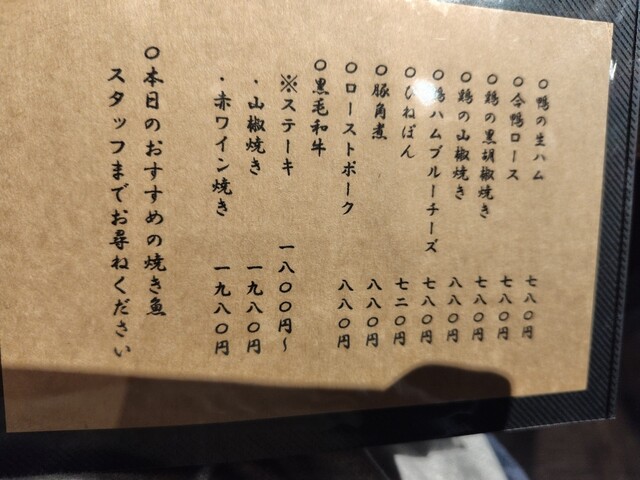 〇鴨の生ハム 七八〇円
〇合鴨ロース 七八〇円
〇鶏の黒胡椒焼き 七八〇円
〇鶏の山椒焼き 八八〇円
〇鶏ハムブルーチーズ 七八〇円
〇ひねぽん 七二〇円
〇豚角煮 八八〇円
〇ローストポーク 八八〇円
〇黒毛和牛
※ステーキ 一八〇〇円～
・山椒焼き 一九八〇円
・赤ワイン焼き 一九八〇円
〇本日のおすすめの焼き魚
スタッフまでお尋ねください